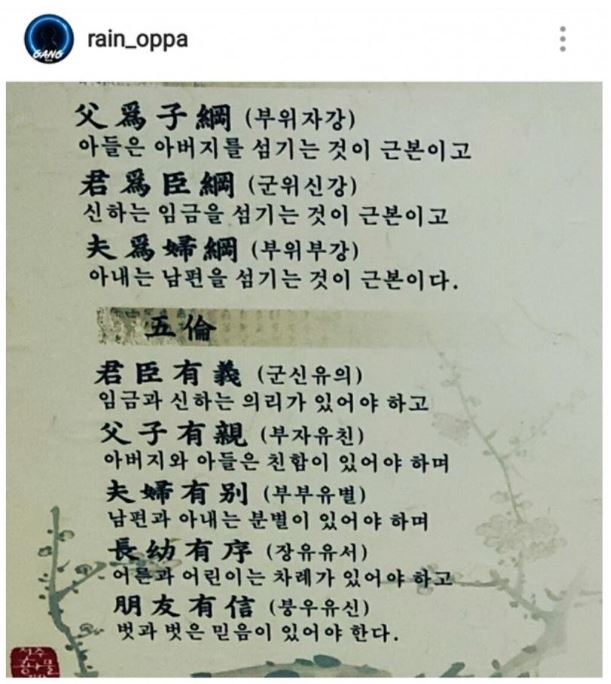 GANG
rain_oppa
父爲子綱 (부위자강)
아들은 아버지를 섬기는 것이 근본이고
君爲臣綱 (군위신강)
신하는 임금을 섬기는 것이 근본이고
夫爲婦綱 (부위부강)
아내는 남편을 섬기는 것이 근본이다.
五倫
君臣有義 (군신유의)
임금과 신하는 의리가 있어야 하고
父子有親 (부자유친)
아버지와 아들은 친함이 있어야 하며
夫婦有別 (부부유별)
남편과 아내는 분별이 있어야 하며
長幼有序 (장유유서)
어른과 어린이는 차례가 있어야 하고
朋友有信 (붕우유신)
벗과 벗은 믿음이 있어야 한다.
전주